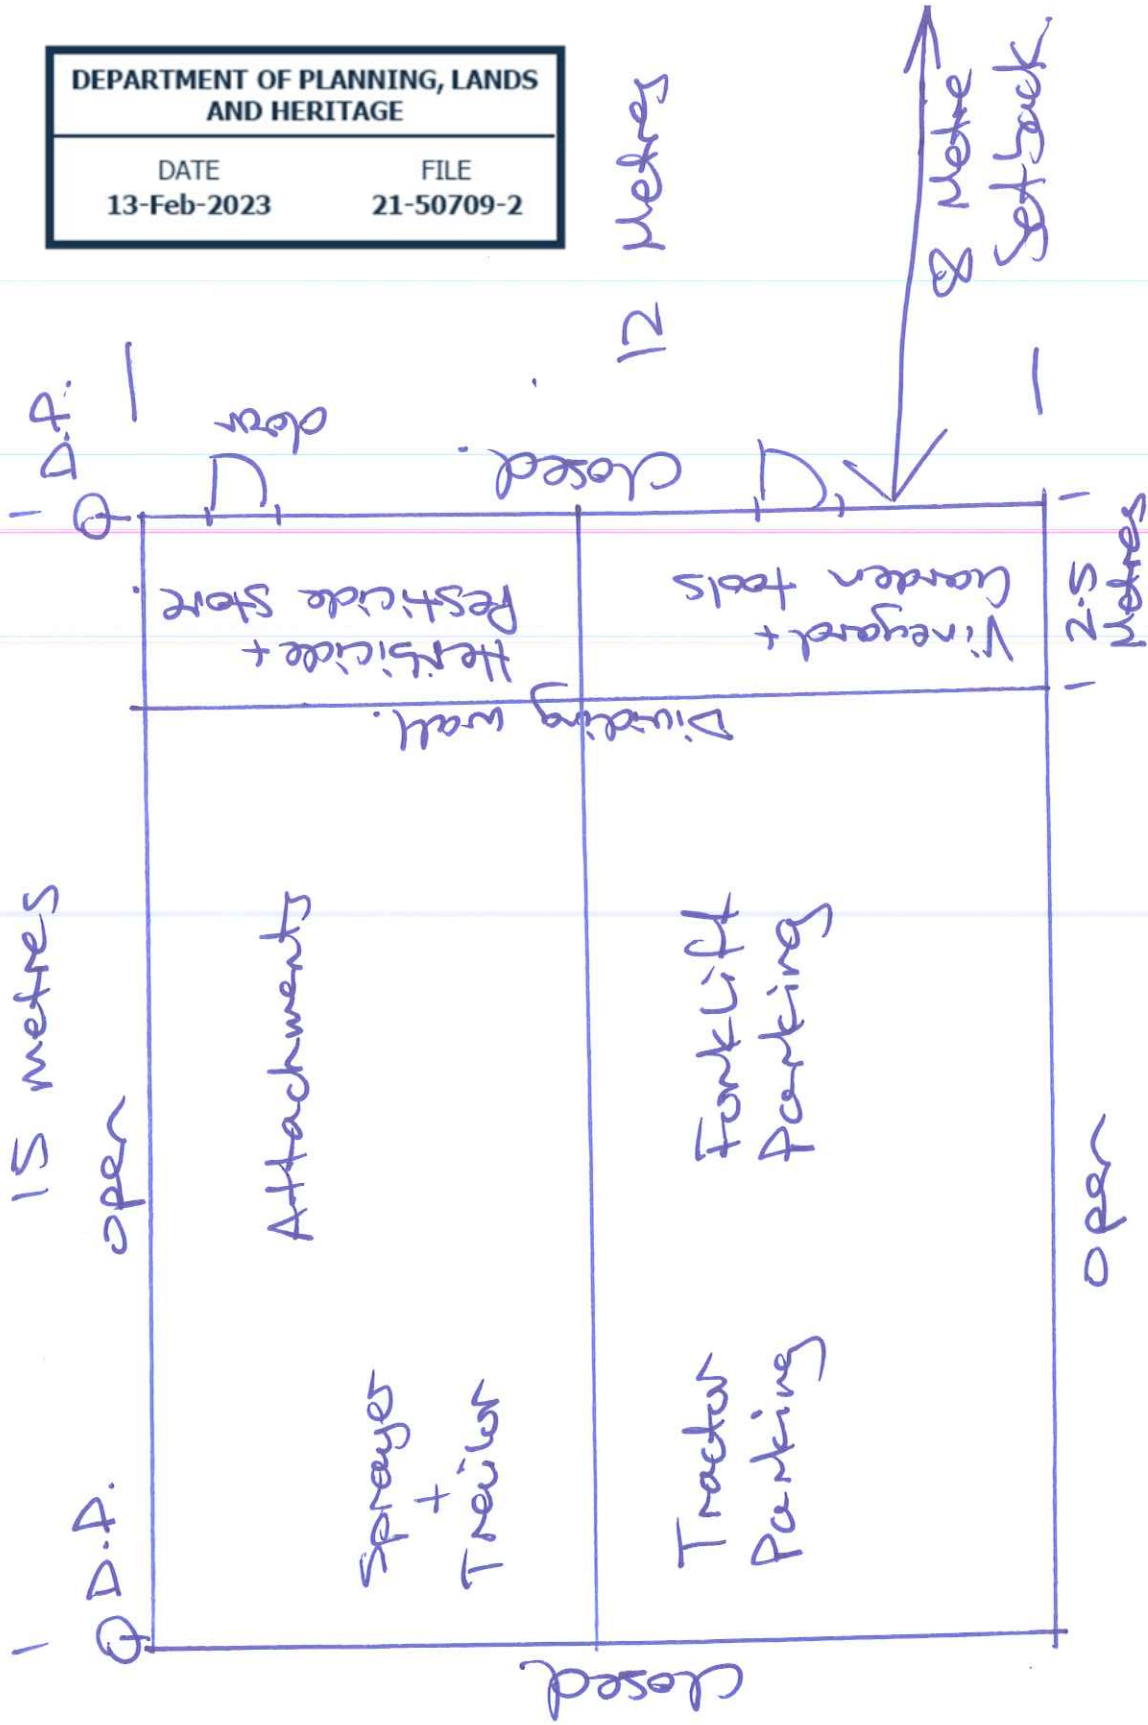 DEPARTMENT OF PLANNING, LANDS
AND HERITAGE
DATE FILE
13-Feb-2023 21-50709-2
12 Metres
8 Metre
Setback.
D.P.
door
closed.
Herbicide +
Pesticide store.
Vineyard +
Garden tools
2.5
Metres
Dividing wall.
15 metres
open
Attachments
ForkLift
Parking
open
D.P.
Sprayer
+
Trailer
Tractor
Parking
closed.